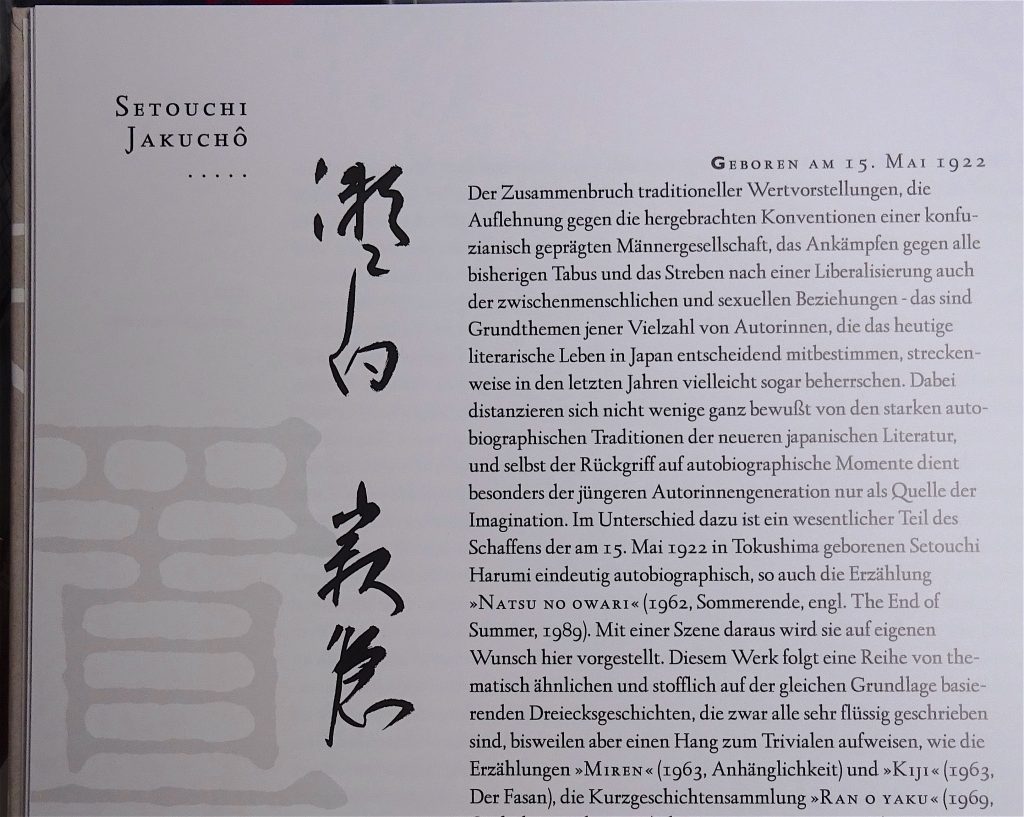 SETOUCHI
JAKUCHÔ
.....
瀬戸内
寂聴
GEBOREN AM 15. MAI 1922
Der Zusammenbruch traditioneller Wertvorstellungen, die
Auflehnung gegen die hergebrachten Konventionen einer konfu-
zianisch geprägten Männergesellschaft, das Ankämpfen gegen alle
bisherigen Tabus und das Streben nach einer Liberalisierung auch
der zwischenmenschlichen und sexuellen Beziehungen - das sind
Grundthemen jener Vielzahl von Autorinnen, die das heutige
literarische Leben in Japan entscheidend mitbestimmen, strecken-
weise in den letzten Jahren vielleicht sogar beherrschen. Dabei
distanzieren sich nicht wenige ganz bewußt von den starken auto-
biographischen Traditionen der neueren japanischen Literatur,
und selbst der Rückgriff auf autobiographische Momente dient
besonders der jüngeren Autorinnengeneration nur als Quelle der
Imagination. Im Unterschied dazu ist ein wesentlicher Teil des
Schaffens der am 15. Mai 1922 in Tokushima geborenen Setouchi
Harumi eindeutig autobiographisch, so auch die Erzählung
»NATSU NO OWARI« (1962, Sommerende, engl. The End of
Summer, 1989). Mit einer Szene daraus wird sie auf eigenen
Wunsch hier vorgestellt. Diesem Werk folgt eine Reihe von the-
matisch ähnlichen und stofflich auf der gleichen Grundlage basie-
renden Dreiecksgeschichten, die zwar alle sehr flüssig geschrieben
sind, bisweilen aber einen Hang zum Trivialen aufweisen, wie die
Erzählungen »MIREN« (1963, Anhänglichkeit) und »KIJI« (1963,
Der Fasan), die Kurzgeschichtensammlung »RAN O YAKU« (1969,